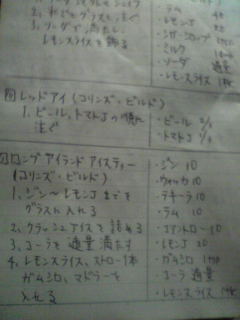 ・ジン 4◦
2、氷とグラスに注ぐ
・レモンJ
3、ソーダで満たし、
・シュガーシロップ 1tsp
レモンスライスを飾る
・ミルク
・ソーダ 適量
・レモンスライス 1枚
レッドアイ (コリンズ・ビルド)
1、ビール、トマトJの順に
注ぐ
・ビール 1/2
・トマトJ 1/2
ロングアイランドアイスティー
(コリンズ・ビルド)
1、ジン〜レモンJまでを
グラスに入れる
2、クラッシュアイスを詰める
3、コーラを適量満たす
4、レモンスライス、ストロー1本
ガムシロ、マドラーを
入れる
・ジン 10
・ウォッカ 10
・テキーラ 10
・ラム 10
・コアントロー 10
・レモンJ 20
・ガムシロ 1tsp
・コーラ 適量
・レモンスライス 1枚